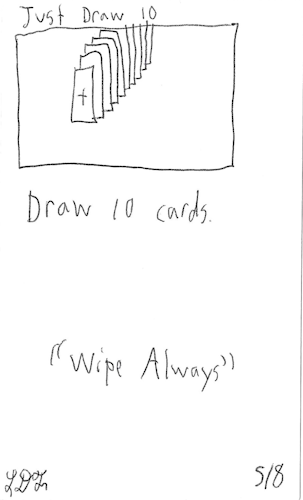 Just Draw 10
Draw 10 cards.
"Wipe Always"
5/8